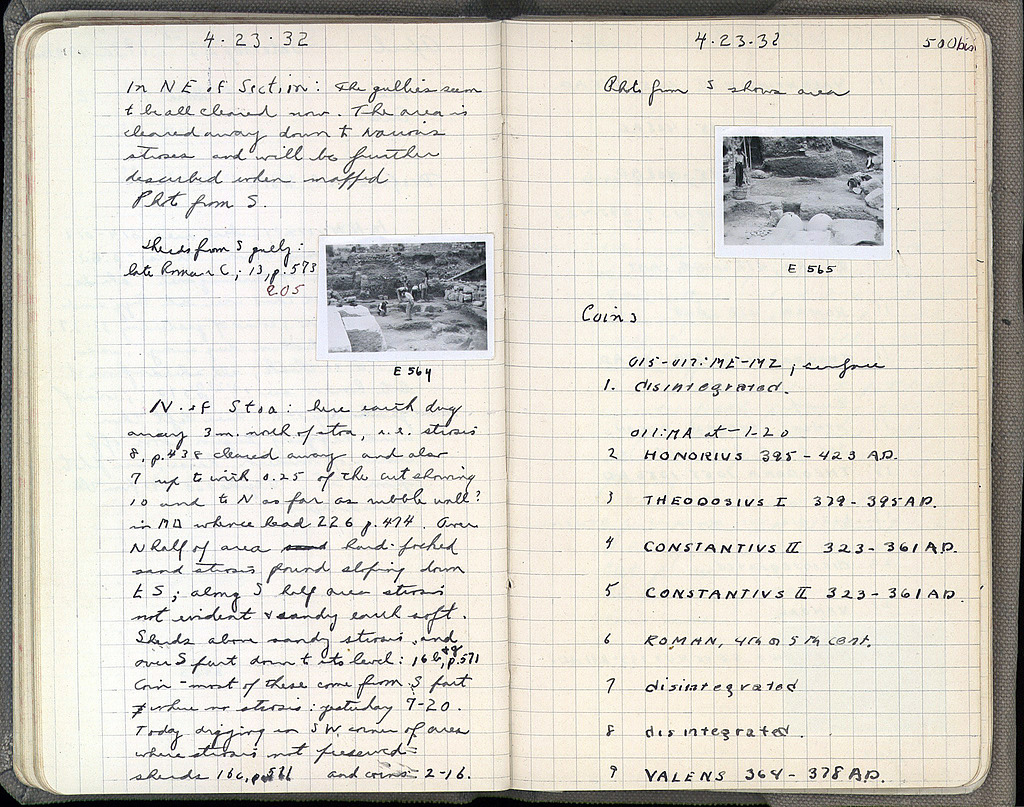 4·23·32
In NE of Section: The gullies seem
to be all cleared now. The area is
cleared away down to various
stroses and will be further
described when mapped
Phot from S.
Sherds from S gully:
late Roman C; 13, p.573
205
E 564
N. of Stoa: here earth dug
away 3 m. north of stoa, i.e. strosis
8, p.438 cleared away and also
7 up to with 0.25 of the cut showing
10 and to N as far as rubble wall?
in MΔ whence lead 226 p.474. Over
N half of area hard-packed
sand strosis found sloping down
to S; along S half area strosis
not evident & sandy earth soft.
Sherds above sandy strosis, and
over S part down to its level: 16 b, p.571
Coin - most of these come from S part
where no strosis: yesterday 7-20.
Today digging in SW corner of area
where strosis not preserved=
sherds 16c, p.571 and coins 2-16.
4·23·32
500bis
Phot from S shows area
E 565
Coins
015-017:ME-MZ; surface
1. disintegrated.
011:MA at -1.20
2 HONORIUS 395-423 A.D.
3 THEODOSIUS I 379-395 A.D.
4 CONSTANTIUS II 323-361 A.D.
5 CONSTANTIUS II 323-361 A.D.
6 ROMAN, 4th or 5th cent.
7 disintegrated
8 disintegrated.
9 VALENS 364-378 A.D.